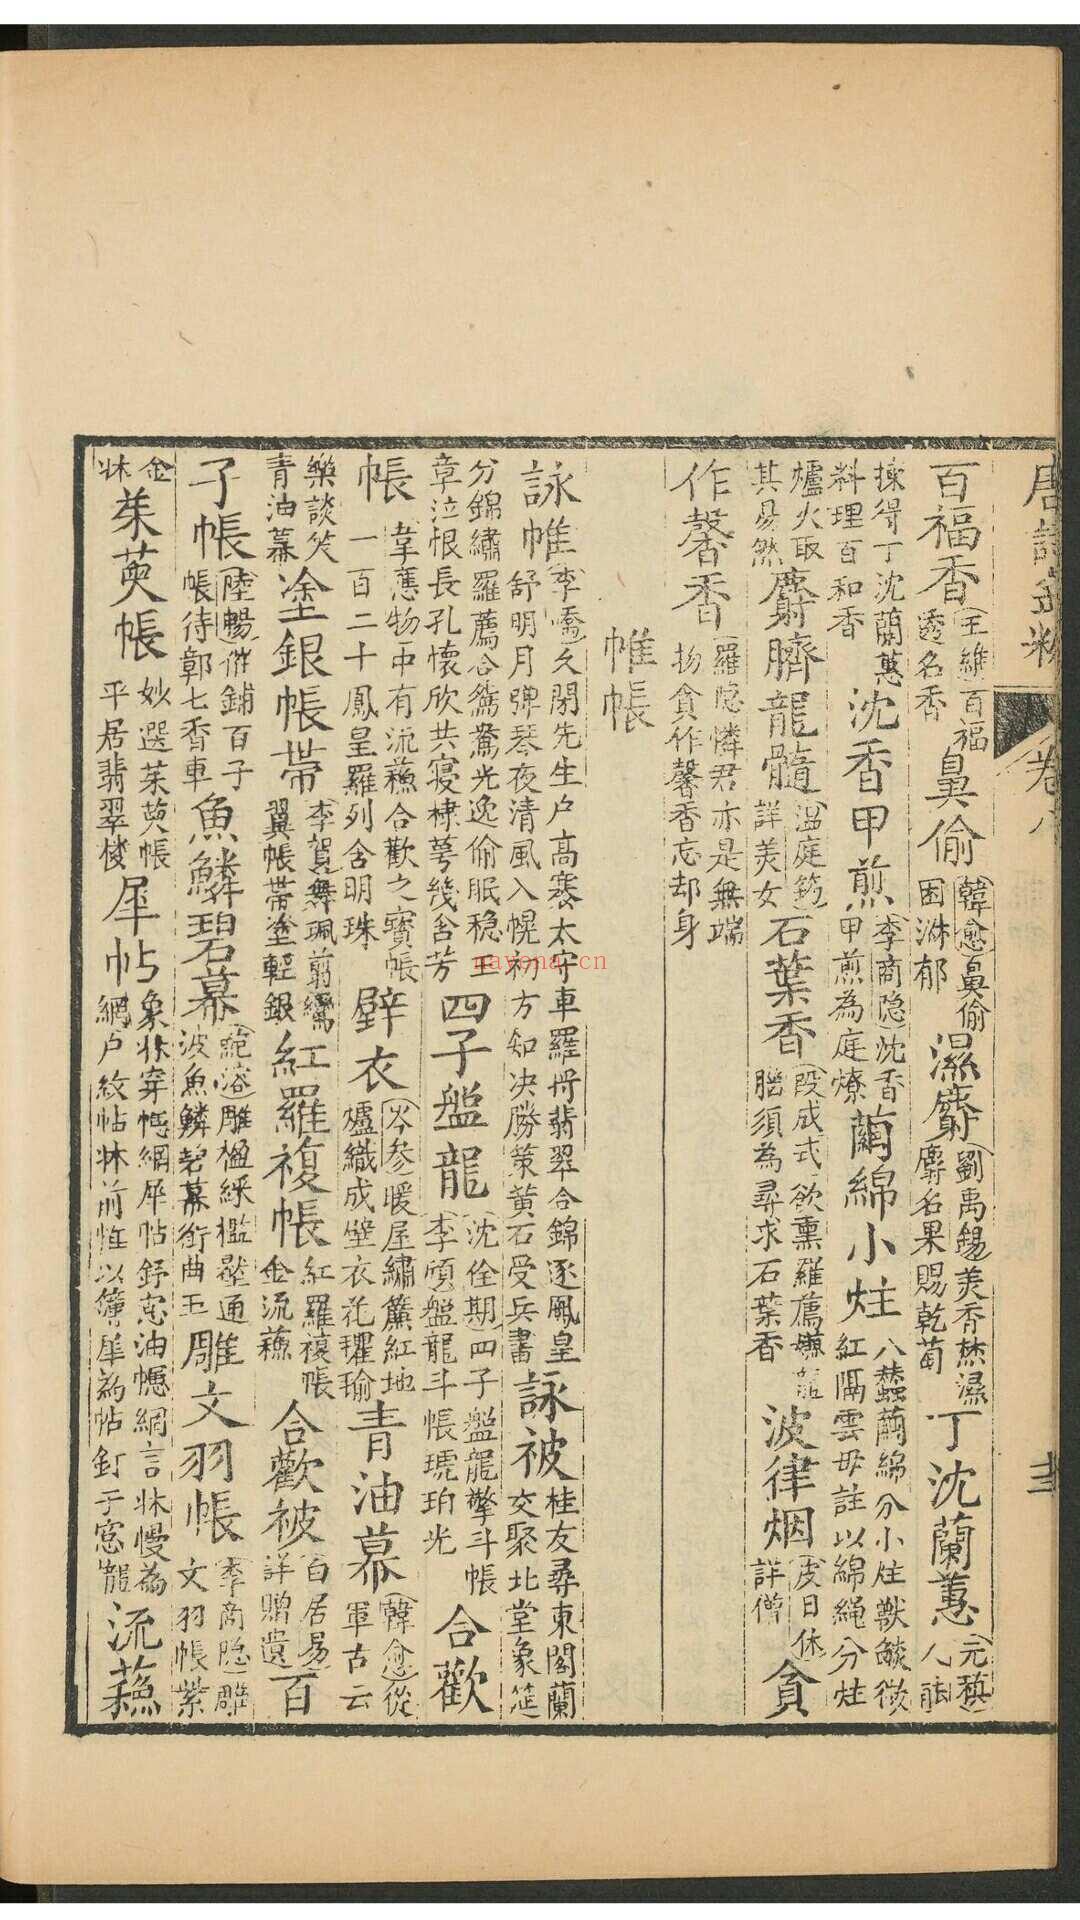 唐詩金粉 卷八
百福香 王維百福透名香 鼻偷 韓愈鼻偷困淋郁 濕麝 劉禹錫羙香焚濕麝名果賜乾萄 丁沈蘭蕙 元稹人能
揀得丁沈蘭蕙料理百和香 沈香甲煎 李商隐沈香甲煎為庭燎 蘭綿小炷 八蠶繭綿分小炷獸燄微紅隔雲母註以綿繩分炷
爐火取其易然 麝臍龍髓 温庭筠詳美女 石葉香 段成式欲熏羅薦嫌龍腦須為尋求石葉香 波律烟 皮日休詳僧 貪
作馨香 羅隐憐君亦是無端物貪作馨香忘却身
帷帳
詠帷 李嶠久閉先生户高褰太守車羅帶翡翠合錦逐鳳皇舒明月彈琴夜清風入幌初方知决勝策黄石受兵書 詠被 桂友尋東閣蘭交聚北堂象筵
分錦繡羅薦合鴛鴦光逸偷眠穏三章泣恨長孔懷欣共寝棣萼幾含芳 四子盤龍 沈佺期四子盤龍擎斗帳李頎盤龍斗帳琥珀光 合歡
帳 韋應物中有流蘓合歡之寳帳一百二十鳳皇羅列含明珠 壁衣 岑參暖屋繡簾紅地爐織成壁衣花㲪毹 青油幕 韓愈從軍古云
樂談笑青油幕 塗銀帳帶 李賀舞珮剪鸞翼帳帶塗輕銀 紅羅複帳 紅羅複帳金流蘓 合歡被 白居易詳贈遺 百
子帳 陸暢催鋪百子帳待鄣七香車 魚鱗碧幕 鮑溶雕楹綵檻壓通波魚鱗碧幕銜曲玉 雕文羽帳 李商隐雕文羽帳紫
金牀 茱萸帳 妙選茱萸帳平居翡翠樓 犀帖 象牀穿幰網犀帖釘窓油幰網言牀幔為網户紋帖牀前帷以簿犀為帖釘于窓櫳 流蘓